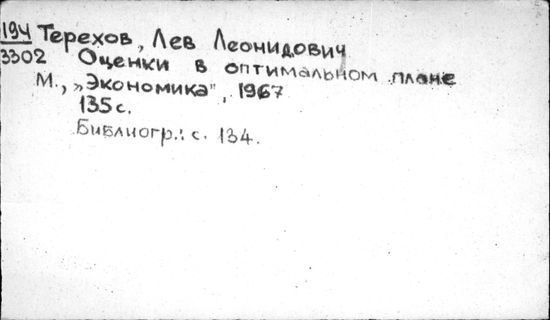 194 Терехов, Лев Леонидович
3302 Оценки в оптимальном плане
М., „Экономика", 1967
135 с.
Библиогр.: с. 134.